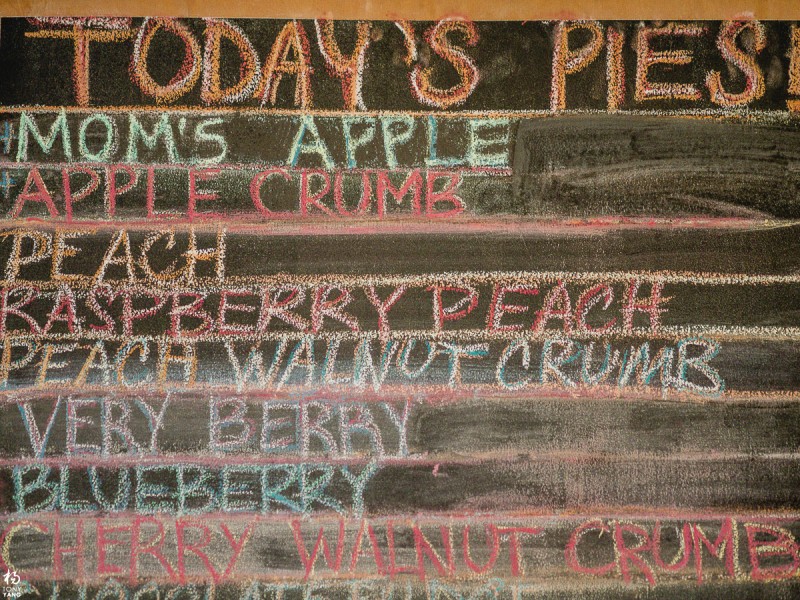 TODAY'S PIES!
MOM'S APPLE
APPLE CRUMB
PEACH
RASPBERRY PEACH
PEACH WALNUT CRUMB
VERY BERRY
BLUEBERRY
CHERRY WALNUT CRUMB
杨
TONY
YANG